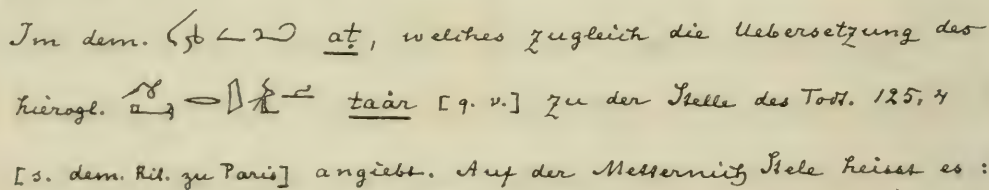 Im dem. aṭ, welches zugleich die Uebersetzung des
hierogl. taàr [q. v.] zu der Stelle des Todt. 125, 4
[s. dem. Rit. zu Paris] angiebt. Auf der Metternich Stele heisst es: